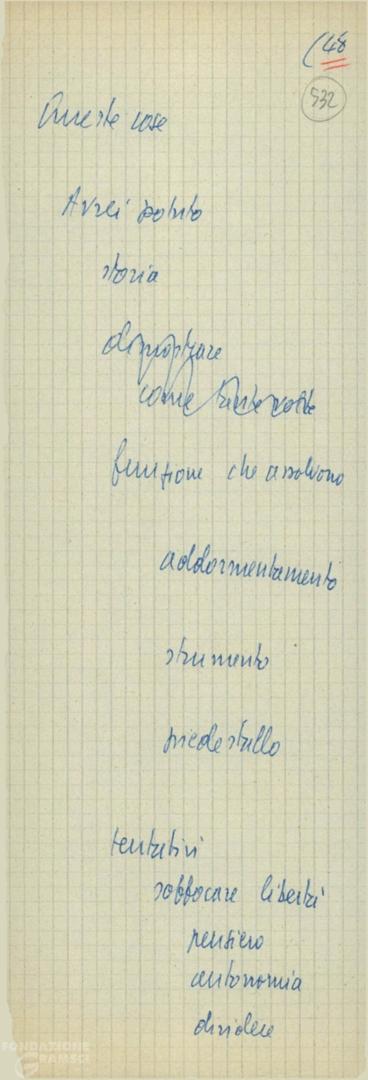 (48
532
Queste cose
Avrei potuto
storia
dimostrare
come tante volte
funzione che assolvono
addormentamento
strumento
piedestallo
tentativi
soffocare libertà
pensiero
autonomia
dividere
FONDAZIONE
GRAMSCI